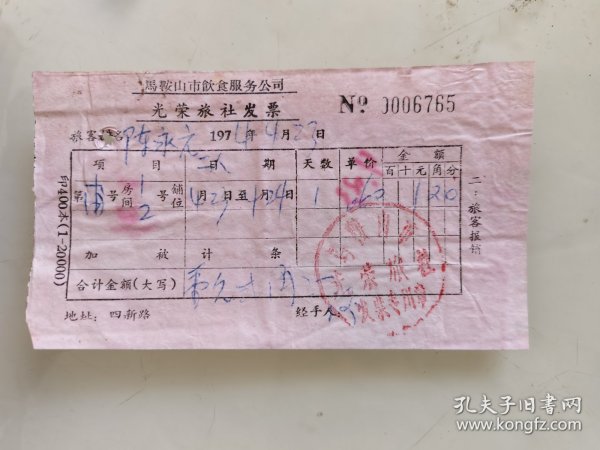 馬鞍山市飲食服务公司
光荣旅社发票
№ 0006765
旅客姓名 陈永元 1974年4月23日
项目 日期 天数 单价 金额
百十元角分
第 号房间 1 2 号铺位 4月23日至4月24日 1 1 2 0
加被 计 条
合计金额(大写)
地址：四新路 经手人：
印400本(1-20000)
二：旅客报销
光荣旅社
发票专用章
孔夫子旧书网
www.kongfz.com